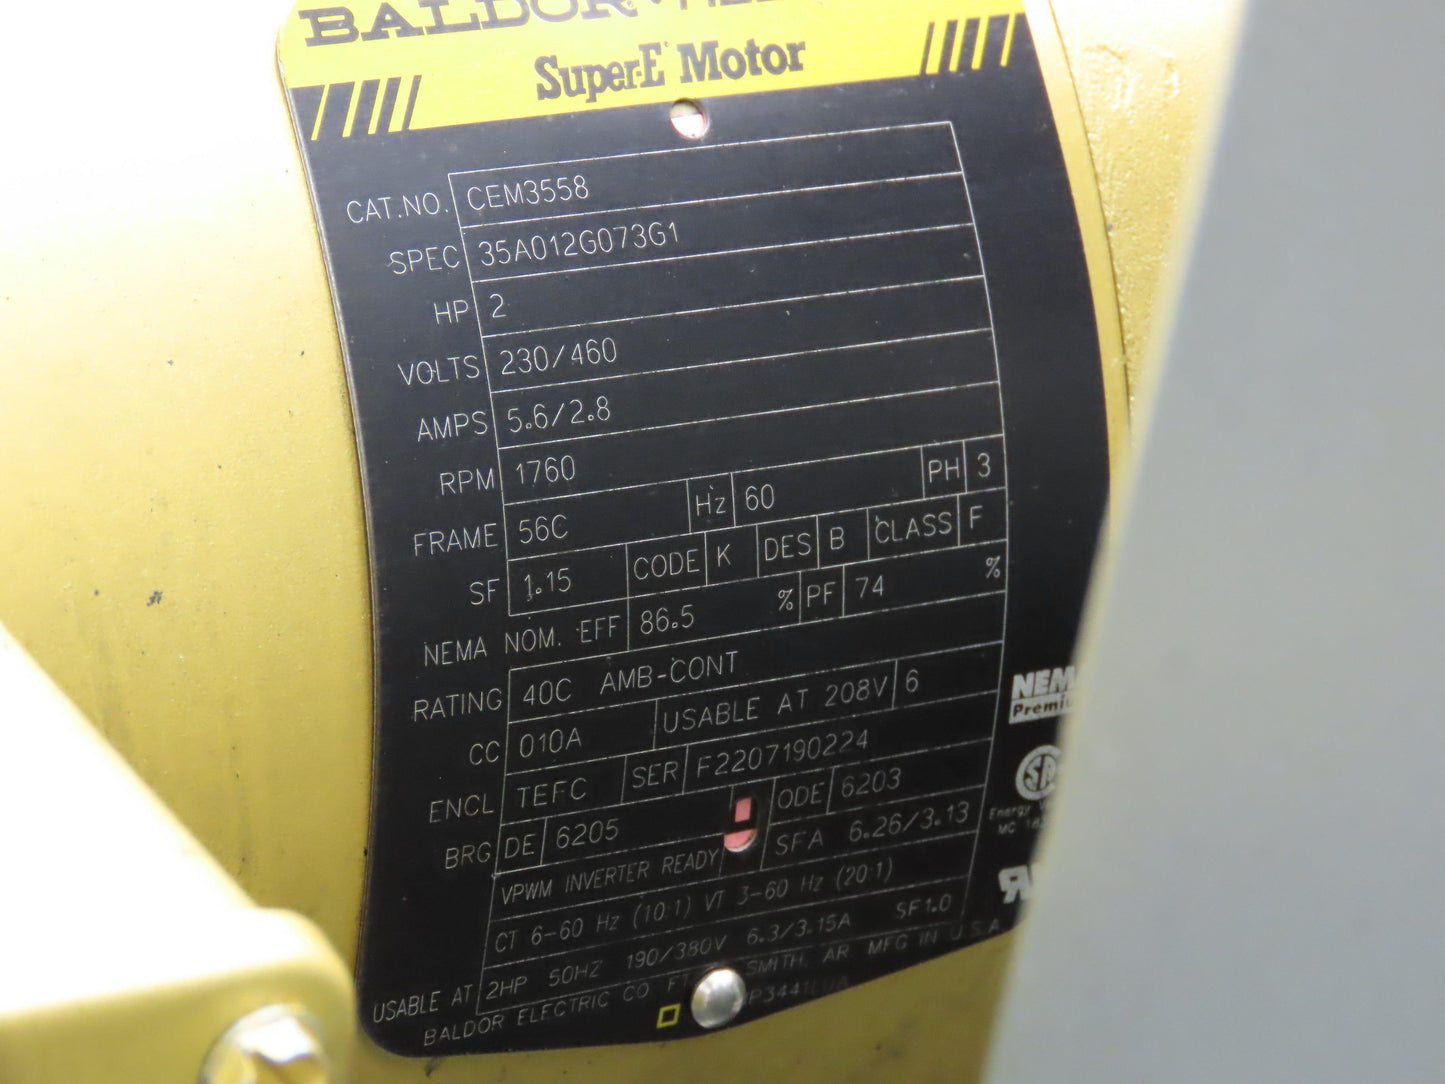 BALDOR
Super-E Motor
CAT.NO. CEM3558
SPEC 35A012G073G1
HP 2
VOLTS 230/460
AMPS 5.6/2.8
RPM 1760
FRAME 56C Hz 60 PH 3
SF 1.15 CODE K DES B CLASS F
NEMA NOM. EFF 86.5 % PF 74 %
RATING 40C AMB-CONT
CC 010A USABLE AT 208V 6
ENCL TEFC SER F2207190224
BRG DE 6205 ODE 6203
VPWM INVERTER READY SFA 6.26/3.13
CT 6-60 Hz (10:1) VT 3-60 Hz (20:1)
USABLE AT 2HP 50HZ 190/380V 6.3/3.15A SF1.0
BALDOR ELECTRIC CO SMITH, AR. MFG IN U.S.A
Energy
MC